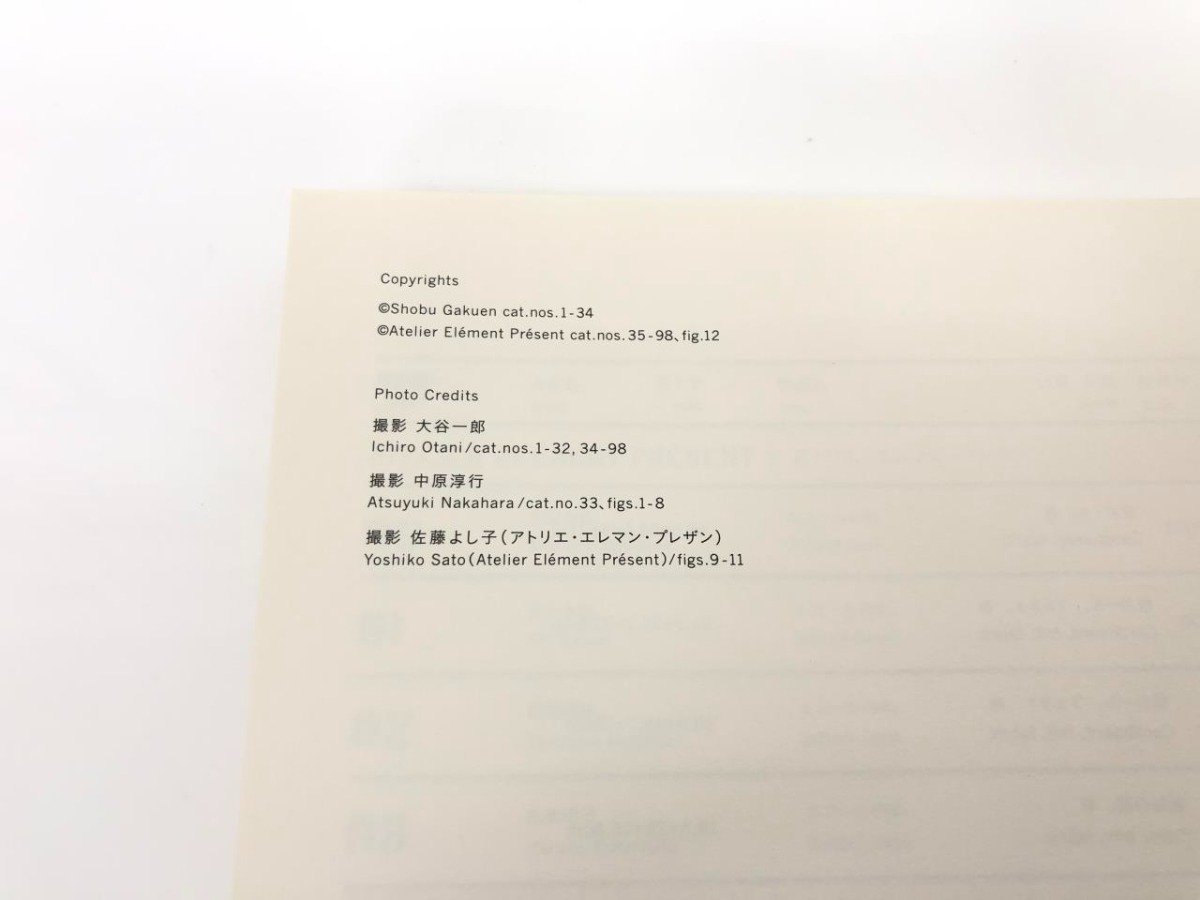 Copyrights
©Shobu Gakuen cat.nos.1-34
©Atelier Elément Présent cat.nos.35-98、fig.12
Photo Credits
撮影 大谷一郎
Ichiro Otani/cat.nos.1-32, 34-98
撮影 中原淳行
Atsuyuki Nakahara/cat.no.33、figs.1-8
撮影 佐藤よし子(アトリエ・エレマン・プレザン)
Yoshiko Sato(Atelier Elément Présent)/figs.9-11